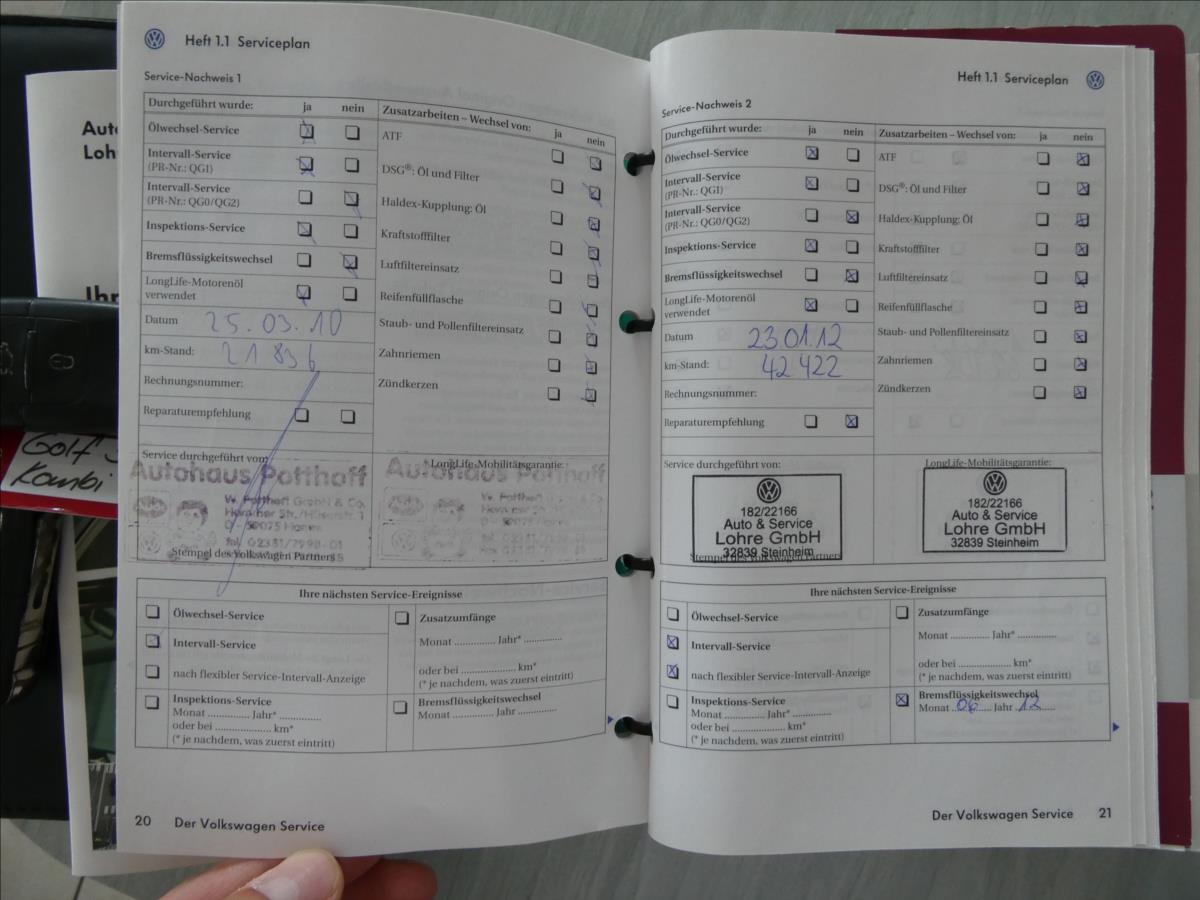 Auto
Loh
Ihr
Golf
Kombi
Heft 1.1 Serviceplan
Service-Nachweis 1
Durchgeführt wurde: ja nein
Ölwechsel-Service
Intervall-Service
(PR-Nr.: QG1)
Intervall-Service
(PR-Nr.: QG0/QG2)
Inspektions-Service
Bremsflüssigkeitswechsel
LongLife-Motorenöl
verwendet
Datum 25.03.10
km-Stand: 21 836
Rechnungsnummer:
Reparaturempfehlung
Zusatzarbeiten – Wechsel von: ja nein
ATF
DSG®: Öl und Filter
Haldex-Kupplung: Öl
Kraftstofffilter
Luftfiltereinsatz
Reifenfüllflasche
Staub- und Pollenfiltereinsatz
Zahnriemen
Zündkerzen
Service durchgeführt von:
Autohaus Potthoff
W. Potthoff GmbH & Co.
D - 59075 Hamm
Tel. 02381/7998-01
Stempel des Volkswagen Partners
LongLife-Mobilitätsgarantie:
Autohaus Potthoff
Ihre nächsten Service-Ereignisse
Ölwechsel-Service
Intervall-Service
nach flexibler Service-Intervall-Anzeige
Inspektions-Service
Monat ............ Jahr* ............
oder bei .................... km*
(* je nachdem, was zuerst eintritt)
Zusatzumfänge
Monat ............ Jahr* ............
oder bei .................... km*
(* je nachdem, was zuerst eintritt)
Bremsflüssigkeitswechsel
Monat ............ Jahr ............
20 Der Volkswagen Service
Heft 1.1 Serviceplan
Service-Nachweis 2
Durchgeführt wurde: ja nein
Ölwechsel-Service
Intervall-Service
(PR-Nr.: QG1)
Intervall-Service
(PR-Nr.: QG0/QG2)
Inspektions-Service
Bremsflüssigkeitswechsel
LongLife-Motorenöl
verwendet
Datum 23.01.12
km-Stand: 42 422
Rechnungsnummer:
Reparaturempfehlung
Zusatzarbeiten – Wechsel von: ja nein
ATF
DSG®: Öl und Filter
Haldex-Kupplung: Öl
Kraftstofffilter
Luftfiltereinsatz
Reifenfüllflasche
Staub- und Pollenfiltereinsatz
Zahnriemen
Zündkerzen
Service durchgeführt von:
182/22166
Auto & Service
Lohre GmbH
32839 Steinheim
Stempel des Volkswagen Partners
LongLife-Mobilitätsgarantie:
182/22166
Auto & Service
Lohre GmbH
32839 Steinheim
Ihre nächsten Service-Ereignisse
Ölwechsel-Service
Intervall-Service
nach flexibler Service-Intervall-Anzeige
Inspektions-Service
Monat ............ Jahr* ............
oder bei .................... km*
(* je nachdem, was zuerst eintritt)
Zusatzumfänge
Monat ............ Jahr* ............
oder bei .................... km*
(* je nachdem, was zuerst eintritt)
Bremsflüssigkeitswechsel
Monat 06 Jahr 12
Der Volkswagen Service 21